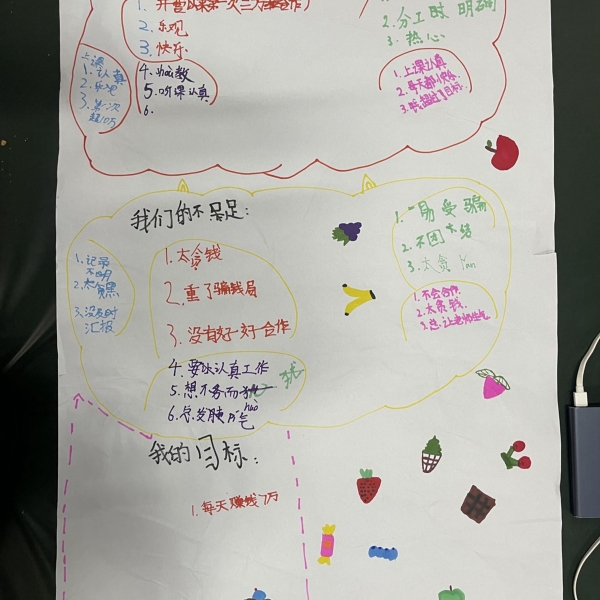 2. 乐观
3. 快乐
2. 分工时 明确
3. 热心
上课
1. 认真
2. 乐观
3. 第一次
超10万
5. 听课认真
6.
1. 上课认真
2. 每天都快乐
我们的不足:
1. 易受骗
2. 不团结
3. 太贪
1. 记录
不明
3. 没及时
汇报
1. 太贪钱
2. 重了骗钱局
3. 没有好好合作
1. 不会合作
2. 太贪钱
3. 总让老师生气
4. 要以认真工作
6. 总发脾气
我的目标:
1. 每天赚钱7万